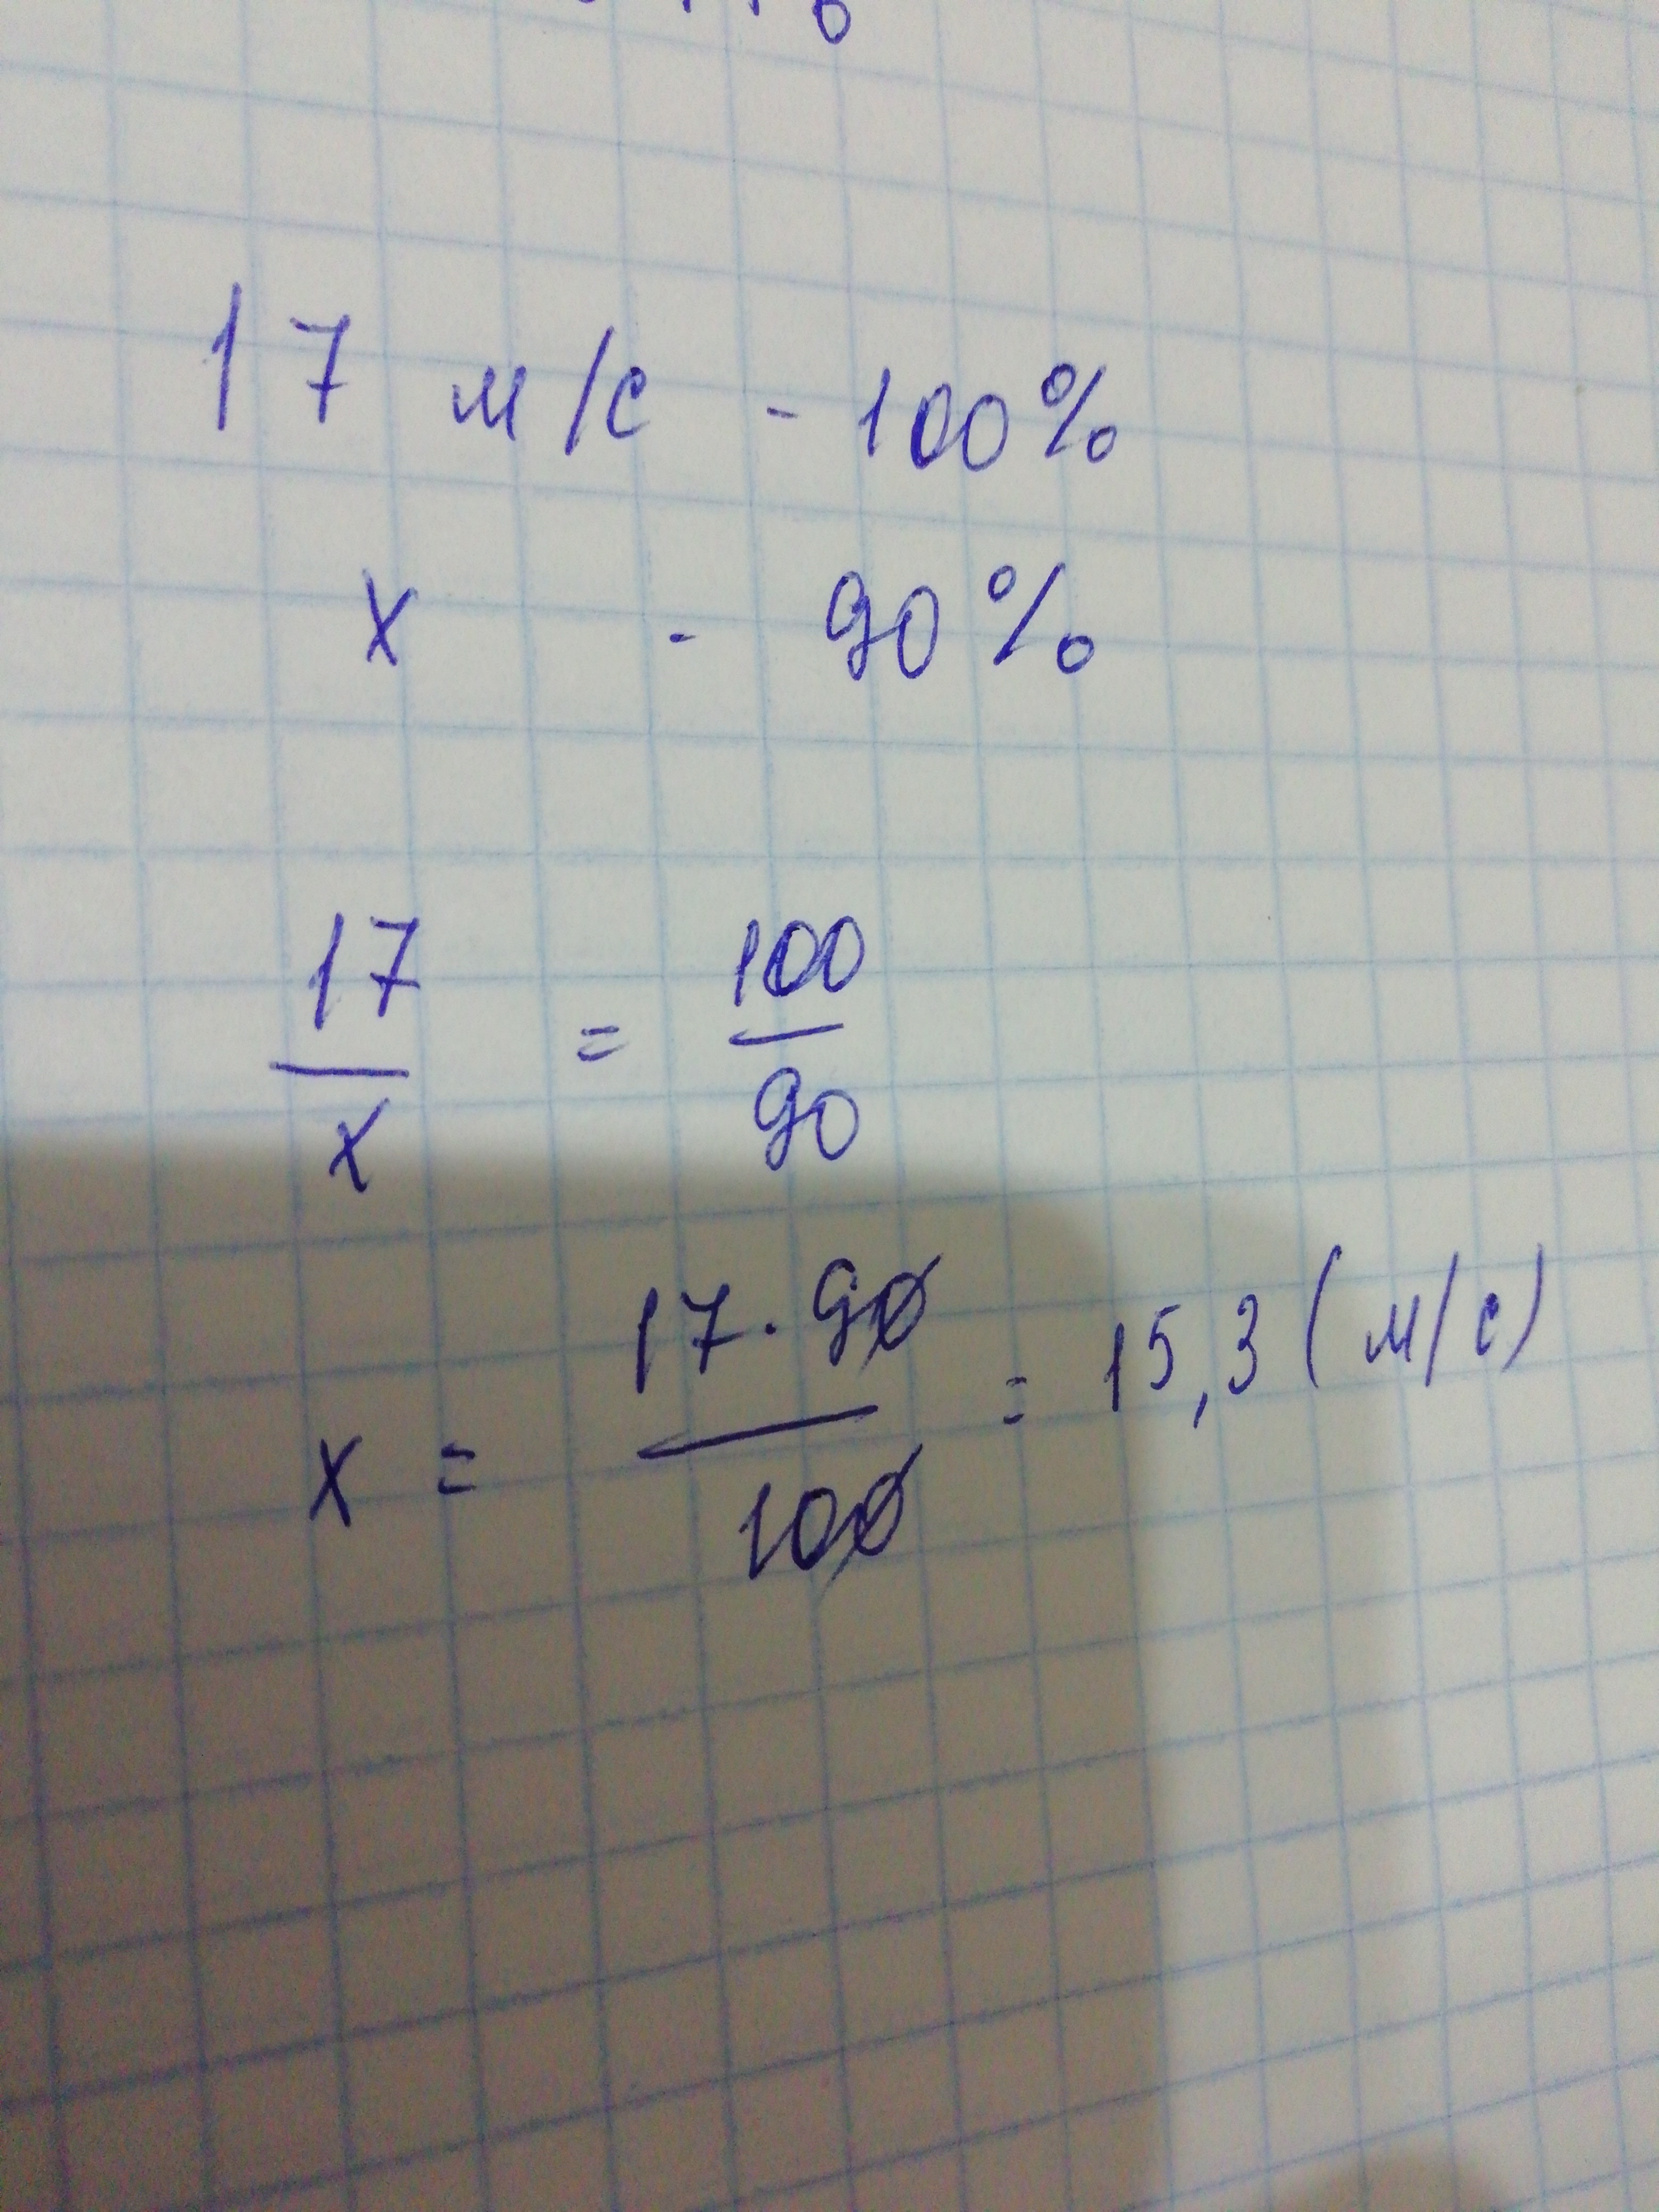 17 м/с - 100%
х - 90%
17/х = 100/90
х = 17·90/100 = 15,3 (м/с)